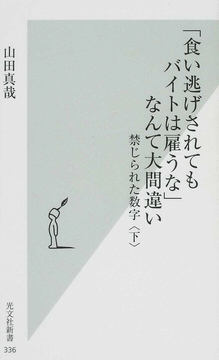 「食い逃げされても
バイトは雇うな」
なんて大間違い
禁じられた数字〈下〉
山田真哉
光文社新書
336